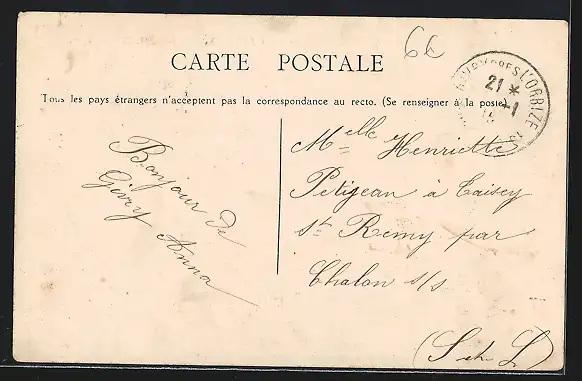 66
CARTE POSTALE
Tous les pays étrangers n'acceptent pas la correspondance au recto. (Se renseigner à la poste)
L'ORBIZE
21 *
Bonjour de
Givry
Anna
Melle Henriette
Petijean à Taisey
St Remy par
Chalon s/s
(S et L)